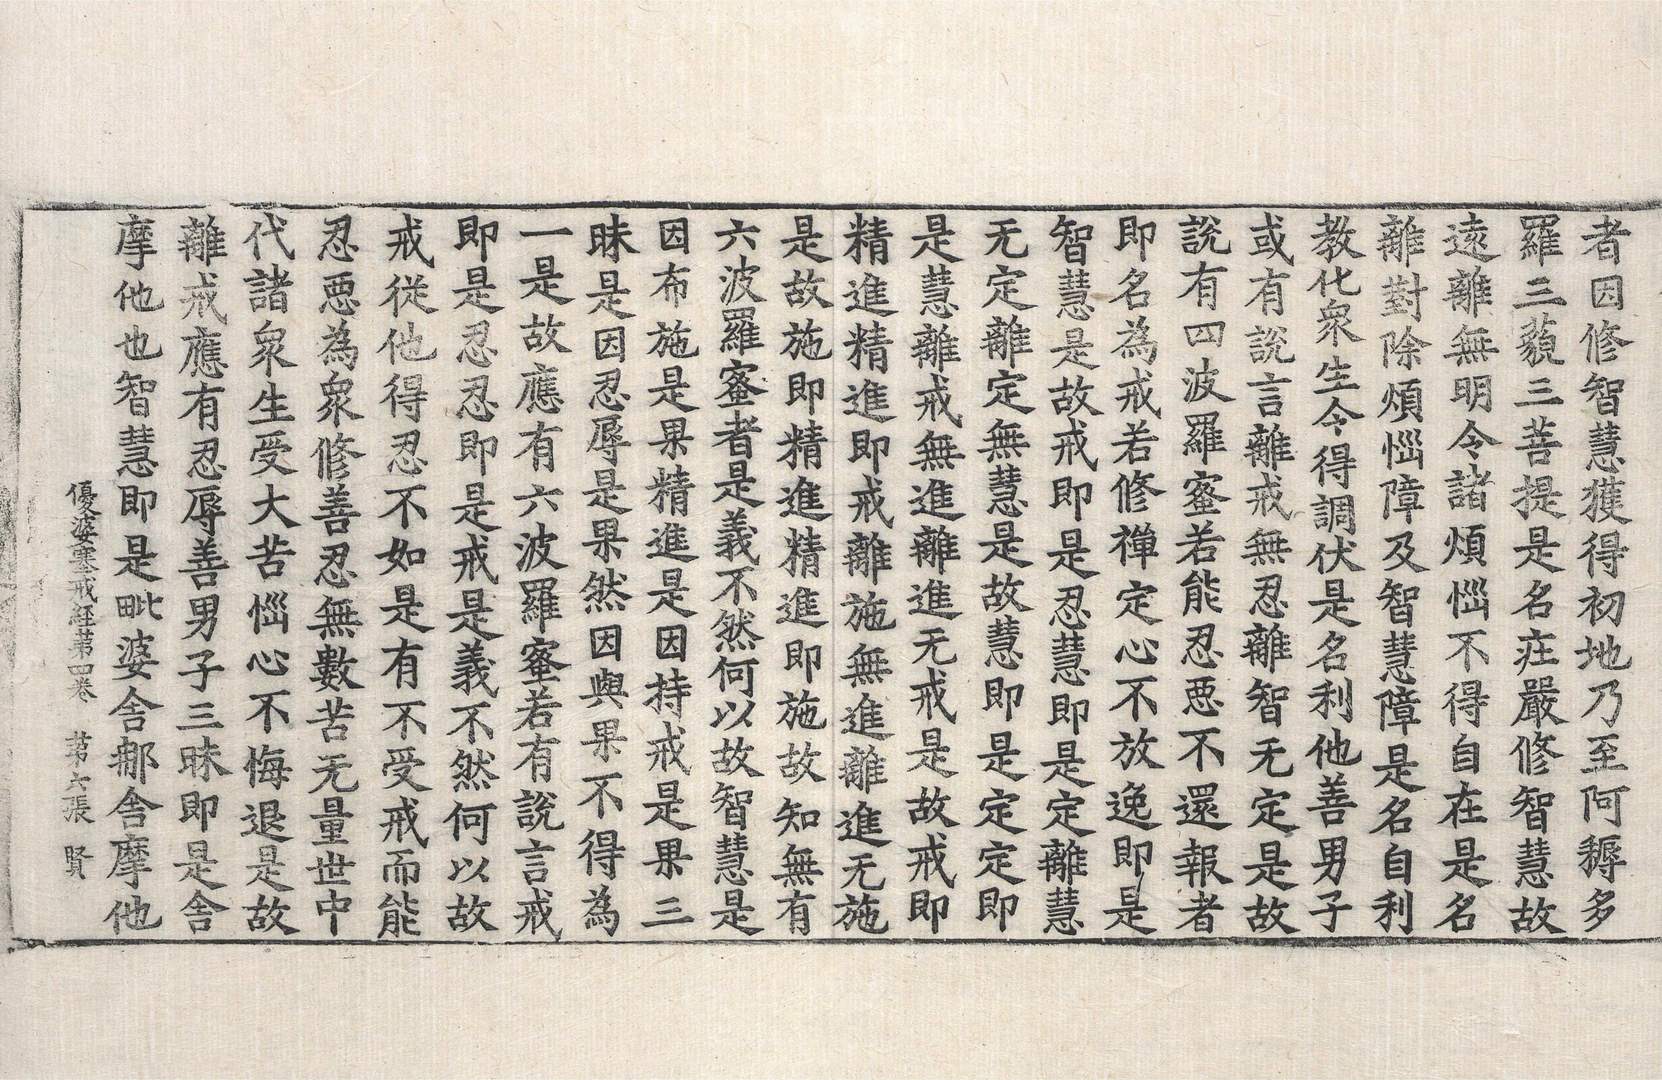 者因修智慧獲得初地乃至阿耨多
羅三藐三菩提是名莊嚴修智慧故
遠離無明令諸煩惱不得自在是名
離對除煩惱障及智慧障是名自利
教化衆生令得調伏是名利他善男子
或有說言離戒無忍離智无定是故
說有四波羅蜜若能忍惡不還報者
即名為戒若修禪定心不放逸即是
智慧是故戒即是忍慧即是定離慧
无定離定無慧是故慧即是定定即
是慧離戒無進離進无戒是故戒即
精進精進即戒離施無進離進无施
是故施即精進精進即施故知無有
六波羅蜜者是義不然何以故智慧是
因布施是果精進是因持戒是果三
昧是因忍辱是果然因與果不得為
一是故應有六波羅蜜若有說言戒
即是忍忍即是戒是義不然何以故
戒從他得忍不如是有不受戒而能
忍惡為衆修善忍無數苦无量世中
代諸衆生受大苦惱心不悔退是故
離戒應有忍辱善男子三昧即是舍
摩他也智慧即是毗婆舍那舍摩他
優婆塞戒経苐四卷 苐六張 賢